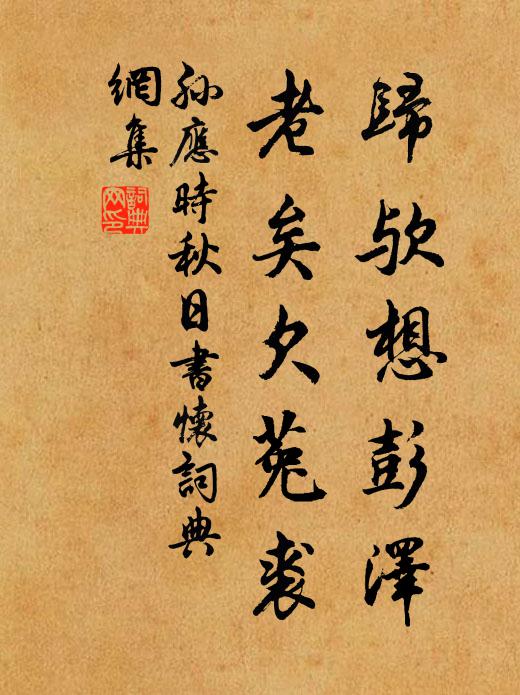 歸欤想彭澤
老矣欠菟裘
孫應時秋日書懷詞典
網集
詞典
网印